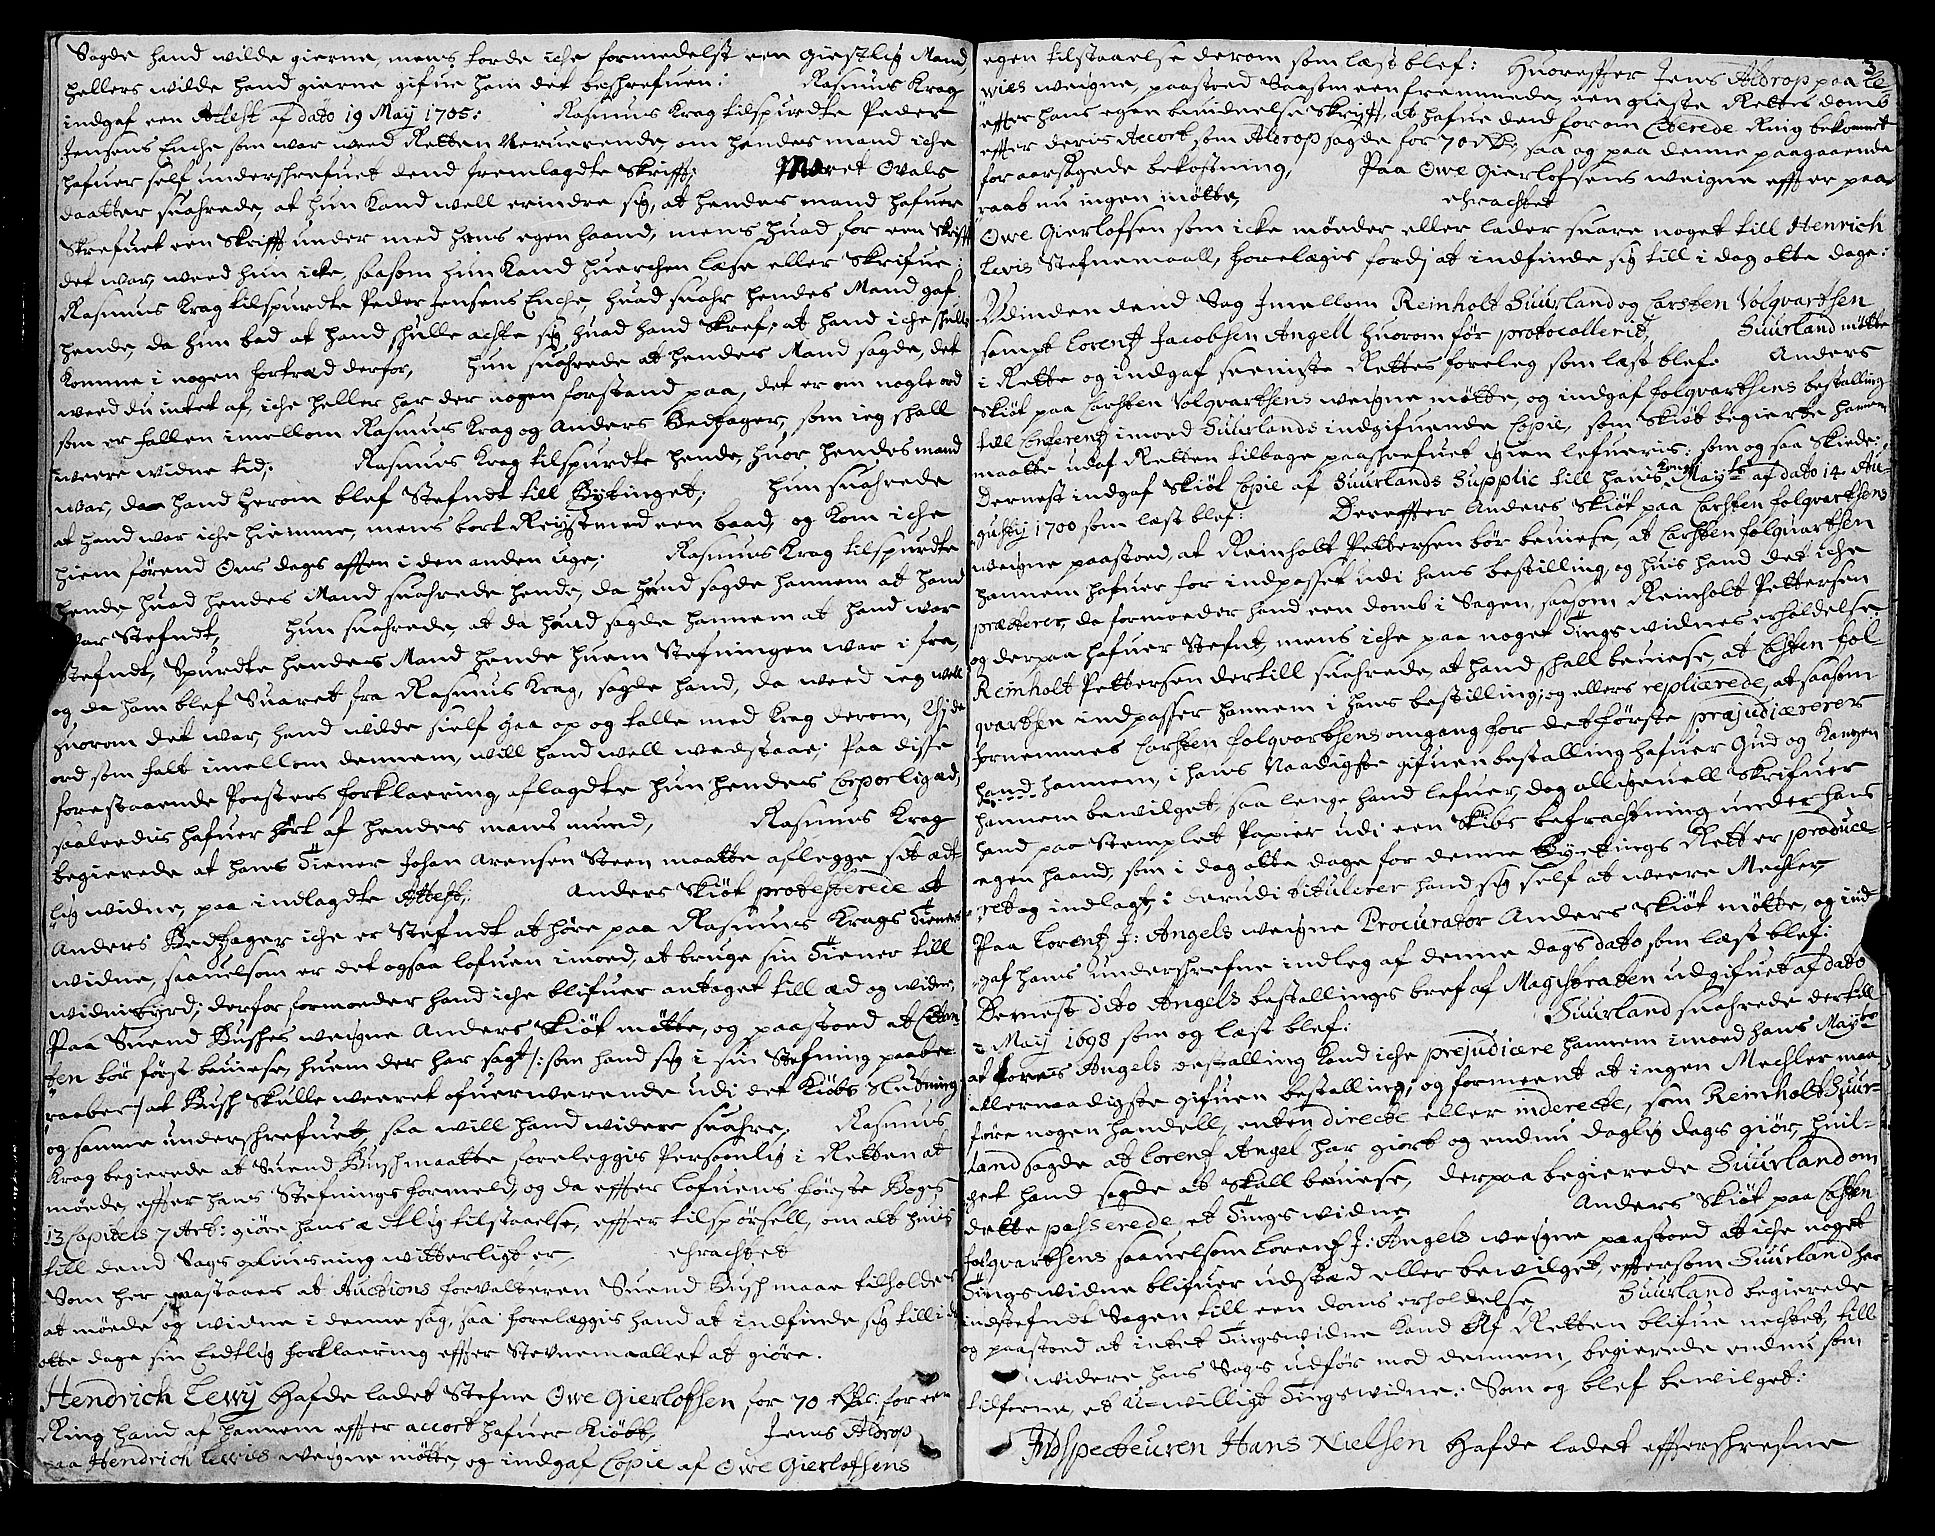 Sagde hand wilde gierne, mens torde iche formedelst een Giestlig Mand,
hellers wilde hand gierne gifue ham det beskrefuen: Rasmus Krag
indgaf een Attest af dato 19 May 1705: Rasmus Krag tilspurdte Peder
Jensens Enche som war weed Retten Neruerende, om hendes mand iche
hafuer self underskrefuet dend fremlagdte Skrifft; Maret Ovals
daatter suahrede, at hun Kand well erindre sig, at hendes mand hafuer
Skrefuet een Skrifft under med hans egen haand, mens huad for een Skrifft
det war, weed hun icke, saasom hun Kand huerchen læse eller Skrifue:
Rasmus Krag tilspurdte Peder Jensens Enche, huad suahr hendes Mand gaf
hende, da hun bad at hand skulle achte sig, huad hand Skref, at hand iche skulle
Komme i nogen fortræd derfor, hun suahrede at hendes Mand sagde, det
weed du intet af, iche heller har der nogen forstand paa, det er om nogle ord
som er fallen imellom Rasmus Krag og Anders Bedhager, som ieg skall
weere widne tid; Rasmus Krag tilspurdte hende, huor hendes mand
war, da hand herom blef Stefndt till Bytinget; hun suahrede
at hand war iche hiemme, mens bort Reyst med een baad, og Kom iche
hiem førend Ons dags afften i den anden uge; Rasmus Krag tilspurdte
hende, huad hendes Mand suahrede hende, da hund sagde hannem at hand
war Stefndt, hun suahrede, at da hund sagde hannem at hand war
Stefndt, Spurdte hendes Mand hende huem Stefningen war i fra,
og da ham blef Suaret fra Rasmus Krag, sagde hand, da weed ieg well
huorom det war, hand wilde sielf gaa op og talle med Krag derom,
ord som falt imellom dennem, will hand well wedstaae; Paa disse
forestaaende Posters forklaering aflagdte hun hendes Corporlig æd,
saaleedis hafuer hørt af hendes mans mund, Rasmus Krag
begierede at hans Tiener Johan Arensen Steen maatte aflegge sit æd-
lig widne, paa indlagdte Attest; Anders Skiøt protesterede at
Anders Bedhager iche er Stefndt at høre paa Rasmus Krags Tieners
widne, saauelsom er det ogsaa lofuen imoed, at bruge sin Tiener till
widnisbyrd; derfor formoeder hand iche blifuer antaget till æd og widne,
Paa Suend Bushes weigne Anders Skiøt møtte, og paastoed at Citan-
ten bør først beuise, huem der har sagt /: som hand sig i sin Stefning paabe-
raaber :/ at Bush Skulle weeret ofuerwerende udi det Kiøbs Slutning
og samme underskrefuet, saa will hand widere suahre, Rasmus
Krag begierede at Suend Bush maatte foreleggis Persoonlig i Retten at
møede, effter hans Stefnings formeld, og da effter Lofuens første Bogs
13 Capitels 7 Art: giøre hans ædtlig tilstaaelse, effter tilspørsell, om alt huis
till dend Sags oplusning witterligt er, Erachtet
Som her paastaaes at Auctions forvalteren Suend Bush maae tilholdes
at møede og widne i denne sag, saa forelæggis hand at indfinde sig till i dag
otte dage sin Eedtlig forklaering effter Stevnemaallet at giøre.
Hendrich Lewy Hafde ladet Stefne Owe Gierlofsen for 70 Rdr: for een
Ring hand af hannem effter accort hafuer Kiøbt, Jens Aldrop
paa Hendrich Lewies weigne møtte, og indgaf Copie af Owe Gierlofsens
3
egen tilstaaelse derom som læst blef: Huoreffter Jens Aldrop paa Le-
wies weigne, paastoed Saasom een fremmede, een gieste Rettes domb
effter hans egen beuidnelse Skrifft, at hafue dend forom Citerede Ring bekommet
effter deris Accort som Aldrop sagde for 70 Rd; saa og paa denne paagaaende
foraarsagede bekostning, Paa Owe Gierlofsens weigne effter paa-
raab nu ingen møtte, Erachtet
Owe Gierlofsen som icke møeder eller lader suare noget till Henrich
Lewis Stefnemaall, forelægis fordj at indfinde sig till i dag otte dage:
Udinden dend Sag Imellom Reinholt Suurland og Carsten Volqvartsen
sampt Lorentz Jacobsen Angell huorom før protocollerit, Suurland møtte
i Rette og indgaf seeniste Rettes foreleg som læst blef. Anders
Skiøt paa Carsten Volqvartsens weigne møtte, og indgaf folqvartsens bestalling
till Conferentz imoed Suurlands indgifuende Copie, som Skiøt begierte hannem
maatte udaf Retten tilbage paaskrefuet igien lefueris: som og saa Skiede:
Dernest indgaf Skiøt Copie af Suurlands Supplic till hans Kong May:ts af dato 14 Au-
gustij 1700 som læst blef: Dereffter Anders Skiøt paa Carsten folqvartsens
weigne paastoed, at Reinholt Pettersen bør beuiese, at Carsten folqvartsen
hannem hafuer for indpasset udi hans bestilling, og huis hand det iche
præsterer, da formoeder hand een domb i Sagen, saasom Reinholt Pettersen
og derpaa hafuer Stefnt, mens iche paa noget Tings widnes erholdelse,
Reinholt Pettersen dertill suahrede, at hand skall beuiese, at Casten fol-
qvartsen indpasser hannem i hans bestilling; og ellers replicerede, at saasom
fornemmes Carsten folqvartsens omgang for det første præjudicerer
hand hannem, i hans Naadigste gifuen bestalling hafuer Gud og Kongen
hannem bewilget, saa lenge hand lefuer, dog alligeuell Skrifuer
hand paa Stemplet Papier udi een Skibs befracktning under hans
egen haand, som i dag otte dage for denne Byetings Rett er produce-
ret og indlagt, i derudi titulerer hand sig self at weere Mechler,
Paa Lorentz J: Angels weigne Procurator Anders Skiøt møtte, og ind-
gaf hans underskrefne indleg af denne dags dato som læst blef:
Dernest dito Angels bestallings bref af Magistraten udgifuet af dato
2 May 1698 som og læst blef: Suurland suahrede dertill
at Lorens Angels bestalling Kand iche prejudicere hannem imoed hans May:ts
allernaadigste gifuen bestalling; og formeent at ingen Mechler maa
føre nogen handell, enten directe eller inderecte, som Reinholt Suur-
land sagde at Lorentz Angel har giort og endnu daglig dags giør, huil-
ket hand sagde at Skall beuiese, derpaa begierede Suurland om
dette passerede et Tings widne, Anders Skiøt paa Casten
folqvartsens saauelsom Lorentz J: Angels weigne paastoed at iche noget
Tings widne blifuer udstæd eller bewilget, effter som Suurland har
indstefndt Sagen till een doms erholdelse, Suurland begierede
og paastoed at intet Tings widne Kand Af Retten blifue nechtet, till
widere hans Sags udfør mod dennem, begierede endnu som
tilforne, et U-willigt Tings widne: Som og blef bewilget:
Indspecteuren Hans Nielsen Hafde ladet effterskrefne